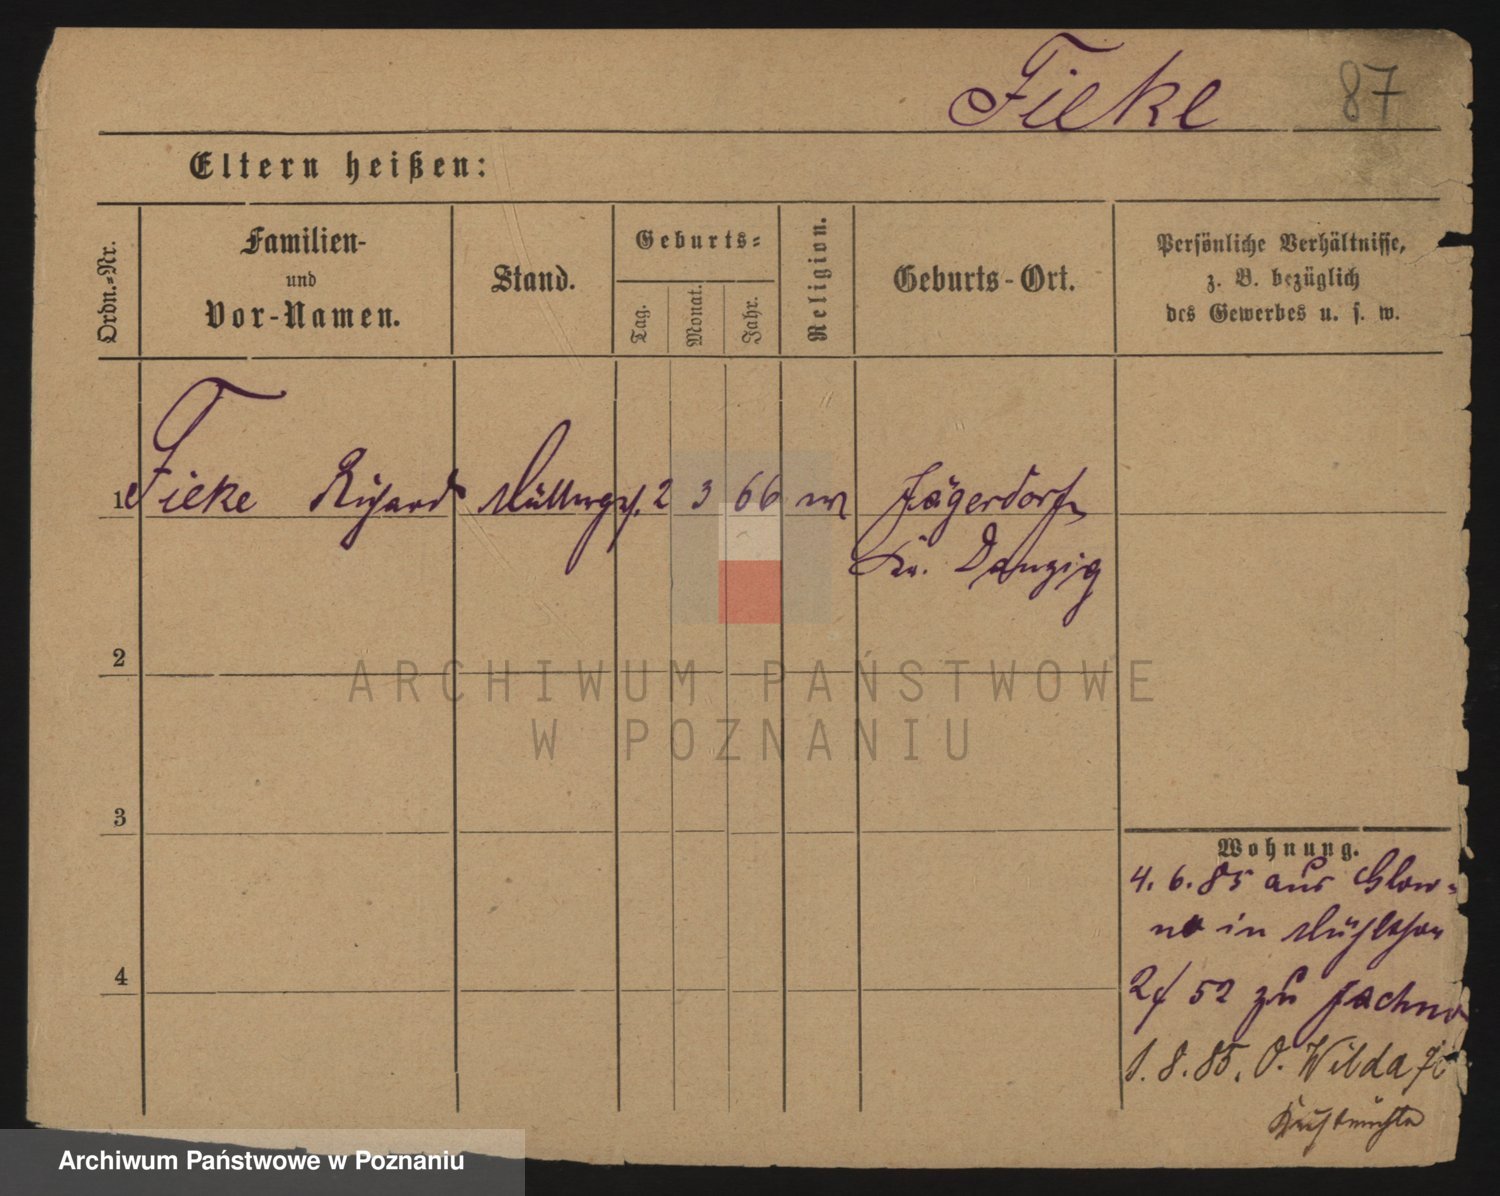 Fieke 87
Eltern heißen:
Ordn.=Nr.
Familien-
und
Vor-Namen.
Stand.
Geburts=
Tag.
Monat.
Jahr.
Religion.
Geburts-Ort.
Persönliche Verhältnisse,
z. B. bezüglich
des Gewerbes u. s. w.
1 Fieke Richard Müllerges. 2 3 66 Jägerdorf
Kr. Danzig
2
ARCHIWUM PAŃSTWOWE
W POZNANIU
3
Wohnung.
4. 6. 85 aus Glow-
no in
4
52 zu
1. 8. 85. O. Wilda
Archiwum Państwowe w Poznaniu